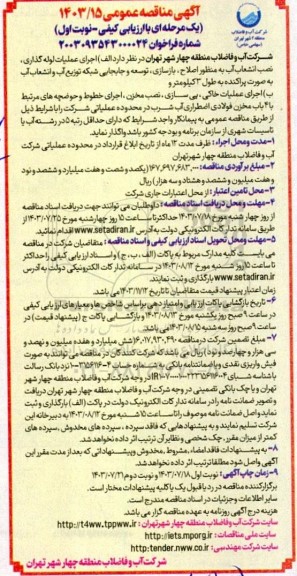 شرکت آب و فاضلاب
منطقه ۴ شهر تهران
(سهامی خاص)
آگهی مناقصه عمومی ۱۴۰۳/۱۵
(یک مرحله ای با ارزیابی کیفی - نوبت اول)
شماره فراخوان ۲۰۰۳۰۹۳۵۴۳۰۰۰۰۲۴
شرکت آب و فاضلاب منطقه چهار شهر تهران در نظر دارد الف) اجرای عملیات لوله گذاری،
نصب انشعاب آب به منظور اصلاح، بازسازی، توسعه و جابجایی شبکه توزیع آب و انشعاب آب
به صورت پراکنده به طول ۳ کیلومتر و
ب) اجرای عملیات خاکی، بی سازی، نصب مخزن، اجرای خطوط و حوضچه های مرتبط
با ۴ باب مخزن فولادی اضطراری آب شرب در محدوده عملیاتی شرکت را با شرایط ذیل
از طریق مناقصه عمومی به پیمانکار واجد شرایط که دارای حداقل رتبه ۵ در رشته آب یا
تاسیسات شهری از سازمان برنامه و بودجه کشور باشد واگذار نماید.
۱-مدت و محل اجراء: ظرف مدت ۱۲ ماه از تاریخ ابلاغ قرارداد در محدوده عملیاتی شرکت
آب و فاضلاب منطقه چهار شهر تهران
۲-مبلغ برآوردی مناقصه: ۱۶۷,۶۹۷,۶۸۳,۰۰۰ (یکصد و شصت و هفت میلیارد و ششصد و نود
و هفت میلیون و ششصد و هشتاد و سه هزار) ریال
۳-محل تامین اعتبار: از محل اعتبارات جاری شرکت
۴-مهلت و محل دریافت اسناد مناقصه: داوطلبان می توانند جهت دریافت اسناد مناقصه
از روز چهار شنبه مورخ ۱۴۰۳/۰۷/۱۸ حداکثر تا ساعت ۱۵ روز چهارشنبه مورخ ۱۴۰۳/۰۷/۲۵ از
طریق سامانه تدارکات الکترونیکی دولت به آدرس www.setadiran.ir اقدام نمایند.
۵-مهلت و محل تحویل اسناد ارزیابی کیفی و اسناد مناقصه: متقاضیان شرکت در مناقصه
می بایست کلیه مدارک مربوط به پاکات (الف، ب، ج) و اسناد ارزیابی کیفی را حداکثر
تا ساعت ۱۵ روز شنبه مورخ ۱۴۰۳/۰۸/۱۲ در سامانه تدارکات الکترونیکی دولت به آدرس
www.setadiran.ir بارگذاری و ثبت نمایند.
زمان اعتبار پیشنهاد قیمت متقاضیان تا تاریخ می باشد.
۶-تاریخ بازگشایی پاکات ارزیابی و امتیازدهی بر اساس شاخص ها و معیارهای ارزیابی کیفی
در ساعت ۹ صبح روز یکشنبه مورخ ۱۴۰۳/۰۸/۱۳ و بازگشایی پاکات ج (پیشنهاد قیمت) در
ساعت ۹ صبح روز سه شنبه ۱۴۰۳/۰۸/۱۵ می باشد.
۷-مبلغ تضمین شرکت در مناقصه: (شش میلیارد و هفده میلیون و نهصد و
سی هزار و چهارصد و نود) ریال می باشد که شرکت کنندگان در مناقصه می توانند به صورت
فیش واریزی نقدی و یا ضمانتنامه بانکی به شماره حساب نزد بانک رسالت
با شناسه شبای در وجه شرکت آب و فاضلاب منطقه چهار شهر
تهران و یا چک بانکی تضمینی در وجه شرکت آب و فاضلاب منطقه چهار شهر تهران دریافت
و تصویر ضمانت نامه را در سامانه تدارکات الکترونیک دولت در پاکت (الف) بارگذاری و ثبت
نماید و اصل ضمانت نامه موصوف را تا ساعت ۱۵ شنبه مورخ ۱۴۰۳/۰۸/۱۲ به دبیرخانه این
شرکت تسلیم نمایند و به پیشنهادهایی که فاقد سپرده، سپرده های مخدوش، سپرده های
کمتر از میزان مقرر، چک شخصی و نظایر آن ترتیب اثر داده نخواهد شد.
۸-به پیشنهادات فاقد امضاء، مشروط، مخدوش و پیشنهاداتی که بعد از مدت مقرر این
آگهی واصل شود مطلقا ترتیب اثر داده نخواهد شد.
۹-زمان چاپ آگهی: نوبت اول ۱۴۰۳/۰۷/۱۸ و نوبت دوم ۱۴۰۳/۰۷/۲۱
برگزارکننده مناقصه در رد یا قبول یک یا کلیه پیشنهادات مختار است.
سایر اطلاعات و جزئیات در اسناد مناقصه مندرج است.
هزینه درج آگهی روزنامه به عهده مناقصه گزار می باشد.
سایت شرکت آب و فاضلاب منطقه چهار شهر تهران: http://t4ww.tppww.ir
سایت ملی مناقصات: http://iets.mporg.ir
سایت شرکت مهندسی: http:tender.nww.co.ir
شرکت آب و فاضلاب منطقه چهار شهر تهران